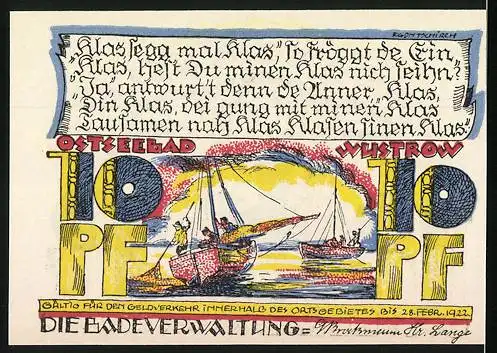 EGON TSCHIRCH
„Klas segg mal Klas," so fröggt de Ein
„Klas, hest Du minen Klas nich seihn?"
„Ja", antwurt't denn de Anner, „Klas,
Din Klas, dei gung mit minen Klas
Tausamen nah Klas Klasen sinen Klas."
OSTSEEBAD WUSTROW
10 10
PF PF
GÜLTIG FÜR DEN GELDVERKEHR INNERHALB DES ORTSGEBIETES BIS 28. FEBR. 1922
DIE BADEVERWALTUNG= Hr. Lange